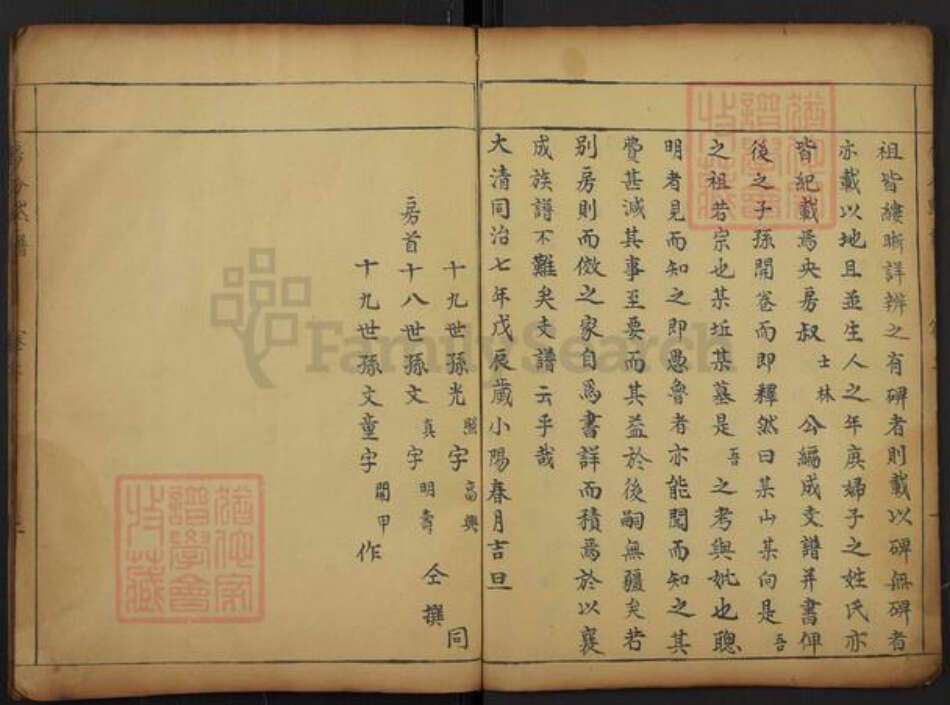 祖皆縷晰詳辨之有碑者則載以碑無碑者
亦載以地且並生人之年庚婦子之姓氏亦
皆紀載焉央房叔士林公編成支譜并書俾
後之子孫開卷而即釋然曰某山某向是吾
之祖若宗也某坵某墓是吾之考與妣也聰
明者見而知之即愚魯者亦能聞而知之其
費甚減其事至要而其益於後嗣無疆矣若
別房則而傚之家自為書詳而積焉於以襄
成族譜不難矣支譜云乎哉
大清同治七年戊辰歲小陽春月吉旦
十九世孫光熙字高興同
房首十八世孫文真字明壽仝撰
十九世孫文童字開甲作
FamilySearch